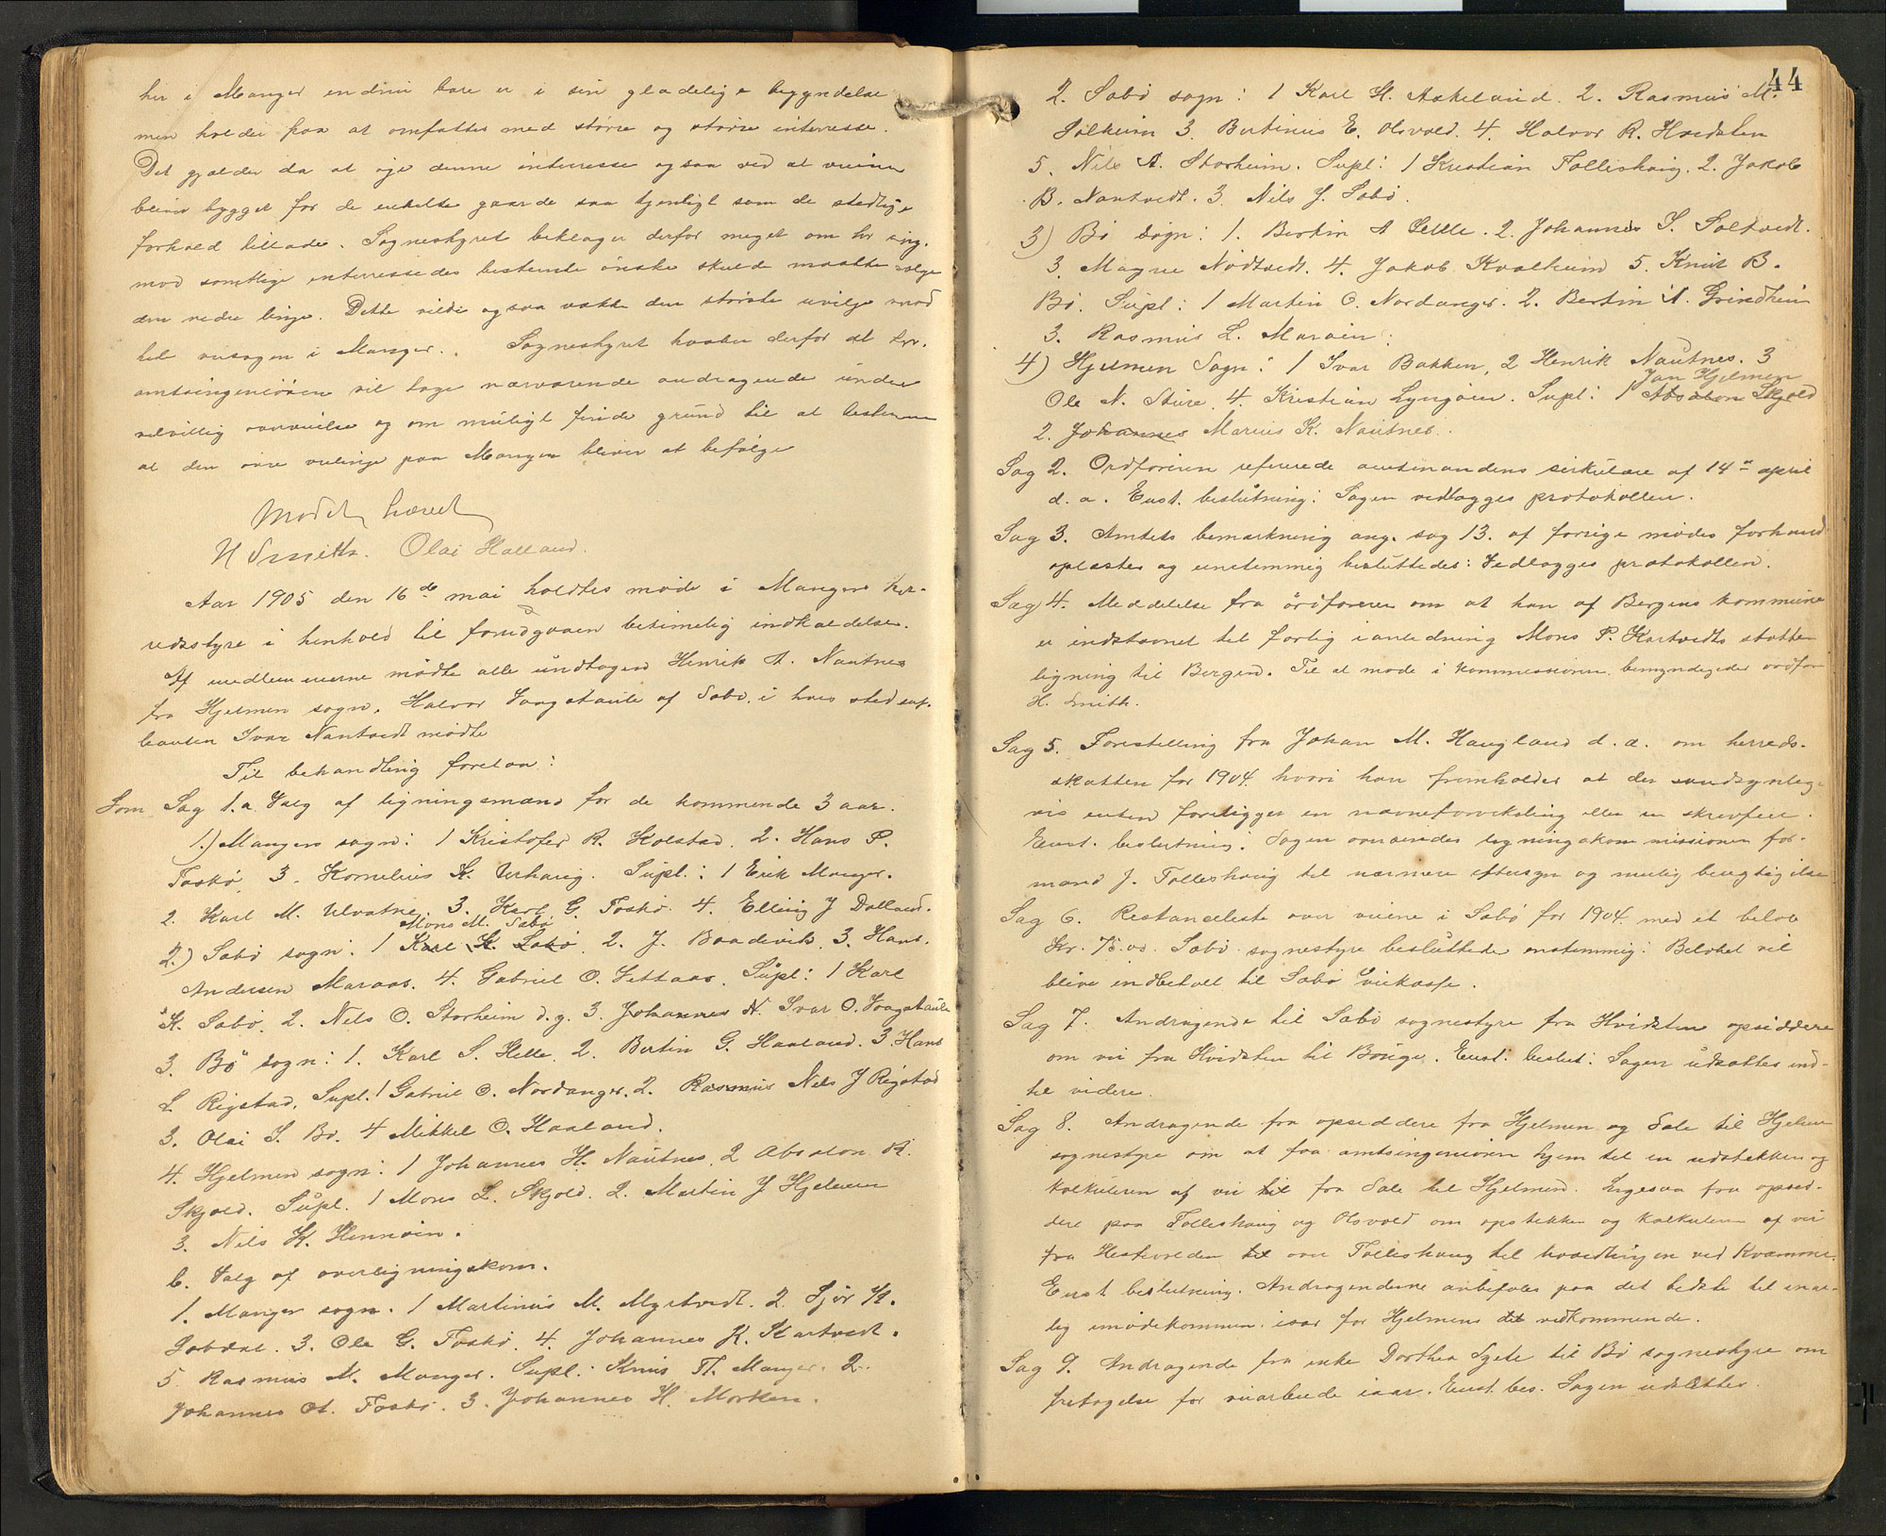 her i Manger endnu bare er i sin glædelige begyndelse
men holder paa at omfattes med større og større interesse.
Det gjælder da at øge denne interesse ogsaa ved at veiene
bliver bygget for de enkelte gaarde saa tjenligt som de stedlige
forhold tillade. Sognestyret beklager derfor meget om hr ing.
mod samtlige interesseredes bestemte ønske skulde maatte vælge
den nedre linje. Dette vilde ogsaa vække den største uvilje mod
hel veisagen i Manger. Sognestyret haaber derfor at hr.
amtsingeniøren vil tage nærværende andragende under
velvillig overveielse og om muligt finde grund til at bestemme
at den øvre veilinje paa Manger bliver at befølge
Mødet hævet
H Smith. Olai Halland.
Aar 1905 den 16de mai holdtes møde i Mangers her-
redsstyre i henhold til forudgaaen betimelig indkaldelse.
Af medlemmerne mødte alle undtagen Henrik A. Nautnes
fra Hjelmen sogn, Halvor Vaagstaule af Sæbø, i hvis sted sup-
leanten Ivar Nantvedt mødte
Til behandling foretoes:
Som Sag 1.a Valg af ligningsmænd for de kommende 3 aar.
1.) Mangers sogn: 1 Kristofer R. Holstad. 2. Hans P.
Toskø. 3. Kornelius K. Urhaug. Supl.: 1 Erik Manger.
2. Karl M. Ulvatne. 3. Karl G. Toskø. 4. Elling J Dalland.
Mons M. Sæbø
2.) Sæbø sogn: 1 Karl K. Sæbø 2. J. Baadsvik. 3. Hans
Andersen Maraas. 4. Gabriel O. Vettaas. Supl: 1 Karl
K. Sæbø. 2. Nils O. Storheim d.y. 3. Johannes N. Ivar O. Vaagstaule
3. Bø sogn: 1. Karl S. Helle. 2. Bertin G. Haaland. 3. Hans
L Rigstad. Supl. 1 Gabriel O. Nordanger. 2. Rasmus Nils J Rigstad
3. Olai S. Bø. 4 Mikkel O. Haaland.
4. Hjelmen sogn: 1 Johannes H. Nautnes. 2 Absalon A.
Skjold. Supl. 1 Mons L. Skjold. 2. Martin J Hjelmen
3. Nils K. Hennøin.
b. Valg af overligningskom.
1. Manger sogn. 1 Martinus M. Myrtvedt. 2. Sjur K.
3. Ole G. Toskø. 4. Johannes K. Kartvedt.
5 Rasmus M. Manger. Supl: Knut Th. Manger. 2.
Johannes A. Toskø. 3. Johannes H. Morken.
44
2. Sæbø sogn: 1 Karl H. Askeland. 2. Rasmus M.
Solheim 3. Bertinius E. Olsvold. 4. Halvor R. Hvidsten
5. Nils A. Storheim. Supl: 1 Kristian Tolleshaug. 2. Jakob
B. Nantvedt. 3. Nils J. Sæbø.
3) Bø sogn: 1. Bertin A Helle. 2. Johannes S. Soltvedt.
3. Magne Nødtvedt. 4. Jakob Kvalheim 5. Knut B.
Bø. Supl: 1 Martin O. Nordanger. 2. Bertin A. Grindheim
3. Rasmus L. Marøin.
4) Hjelmen Sogn: 1 Ivar Bakken, 2 Henrik Nautnes. 3
Jan Hjelmen
Ole N. Sture. 4. Kristian Lyngøin. Supl: 1 Absalon Skjold
2. Johannes Marius K. Nautnes.
Sag 2. Ordføreren refererede amtmandens sirkulære af 14de april
d. a. Enst. beslutning: Sagen vedlægges protokollen.
Sag 3. Amtets bemærkning ang. sag 13. af forrige mødes forhand
oplæstes og enstemmig besluttedes: Vedlægges protokollen.
Sag 4. Meddelelse fra ordføreren om at han af Bergens kommune
er indstævnet til forlig i anledning Mons P. Kartvedts skatte
ligning til Bergen. Til at møde i kommissionen bemyndigedes ordfør
H. Smith.
Sag 5. Forestilling fra Johan M. Haugland d. a. om herreds-
skatten for 1904 hvori han fremholder at der sandsynlig-
vis enten foreligger en navneforveksling eller en skrivfeil.
Enst. beslutning. Sagen oversendes ligningskommissionens for-
mand J. Tolleshaug til nærmere eftersyn og mulig berigtigelse
Sag 6. Restanceliste over veiene i Sæbø for 1904 med et beløb
Kr. 75.00. Sæbø sognestyre besluttede enstemmig: Beløbet vil
blive indbetalt til Sæbø veikasse.
Sag 7. Andragende til Sæbø sognestyre fra Hvidsten opsiddere
om vei fra Hvidsten til Bouge. Enst. beslut: Sagen udsættes ind-
til videre.
Sag 8. Andragende fra opsiddere fra Hjelmen og Sale til Hjelmen
sognestyre om at faa amtsingeniøren hjem til en udstikken og
kalkulæren af vei til fra Sale til Hjelmen. Ligesaa fra opsid-
dere paa Tolleshaug og Olsvold om opstikken og kalkulæren af vei
fra til over Tolleshaug til hovedveien ved Kvamme.
Enst beslutning. Andragendene anbefales paa det bedste til snar-
lig imødekommen, især for Hjelmens det vedkommende.
Sag 9. Andragende fra enke Dorthea Sylte til Bø sognestyre om
fritagelse for veiarbeide iaar. Enst. bes. Sagen udsættes.